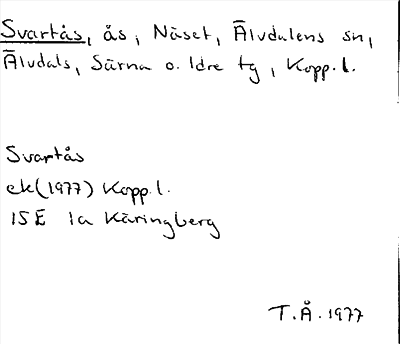 Svartås, ås, Näset, Älvdalens sn,
Älvdals, Särna o. Idre tg, Kopp.l.
Svartås
ek(1977) Kopp.l.
15E 1a Käringberg
T.Å. 1977